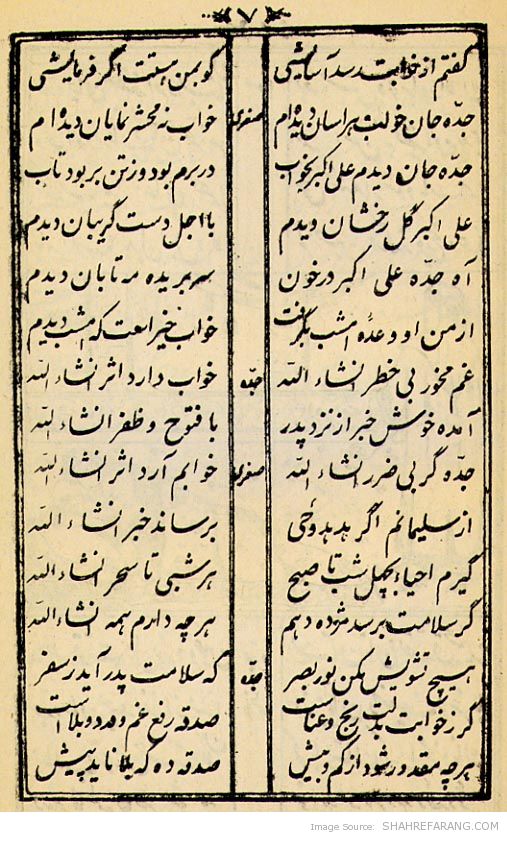 ۷
گفتم از خوابت رسد آسایشی گو بمن هستت اگر فرمایشی
صغری جدّه جان خوابت هراسان دیده‌ام خواب نه محشر نمایان دیده‌ام
جدّه جان دیدم علی اکبر بخواب در برم بود و زتن بر بود تاب
علی اکبر گل رخشان دیدم با اجل دست گریبان دیدم
آه جدّه علی اکبر در خون سر بریده مه تابان دیدم
از من او وعدهٔ امشب بگرفت خواب خیر است که امشب دیدم
غم مخور بی خطر انشاء الله جدّه خواب دارد اثر انشاء الله
آمده خوش خبر از نزد پدر با فتوح و ظفر انشاء الله
جدّه گر بی ضرر انشاء الله صغری خوابم آرد اثر انشاء الله
از سلیمانم اگر هدهد وحی برساند خبر انشاء الله
گیرم احیاء بچهل شب تا صبح هر شبی تا سحر انشاء الله
گر سلامت برسد مژده دهم هر چه دارم همه انشاء الله
هیچ تشویش مکن نور بصر جدّه که سلامت پدر آید ز سفر
گر ز خوابت بدلت رنج و عناست صدقه رفع غم و درد و بلا است
هر چه مقدور شود از کم و بیش صدقه ده که بلا ناید پیش
Image Source: SHAHREFARANG.COM